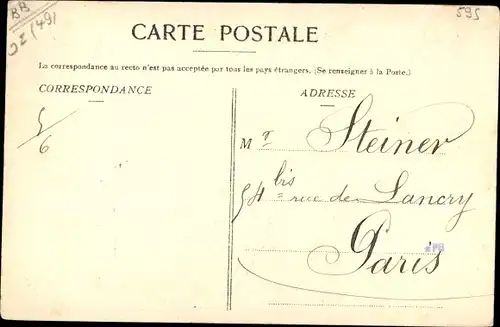 BB
JZ (49)
595
CARTE POSTALE
La correspondance au recto n'est pas acceptée par tous les pays étrangers. (Se renseigner à la Poste.)
CORRESPONDANCE
ADRESSE
5/6
Mr Steiner
54 bis rue de Lancry
Paris